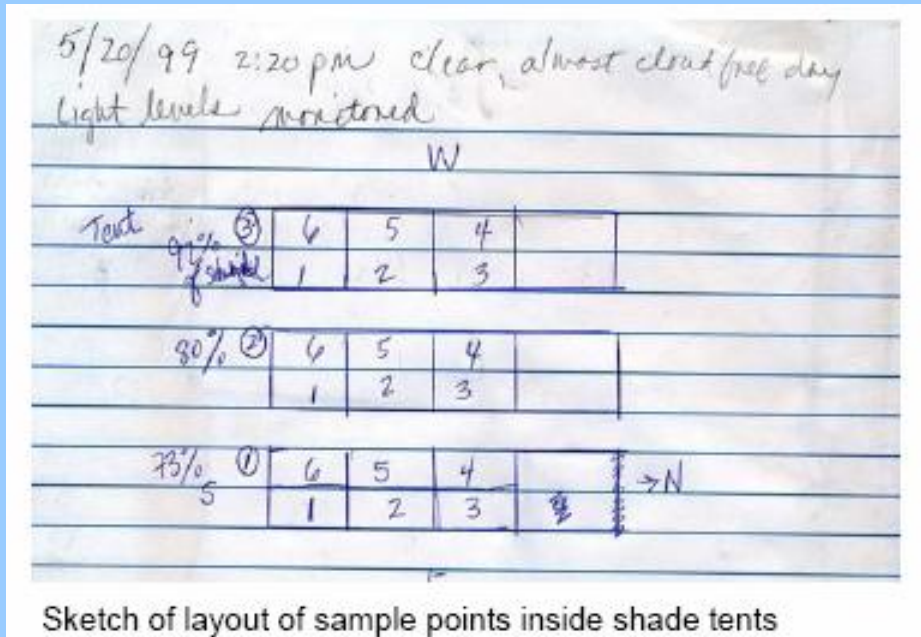 5/20/99 2:20 pm clear, almost cloud free day
light levels monitored
W
Tent ③ 6 5 4
92% of 1 2 3
80% ② 6 5 4
1 2 3
73% ① 6 5 4 →N
5 1 2 3
Sketch of layout of sample points inside shade tents